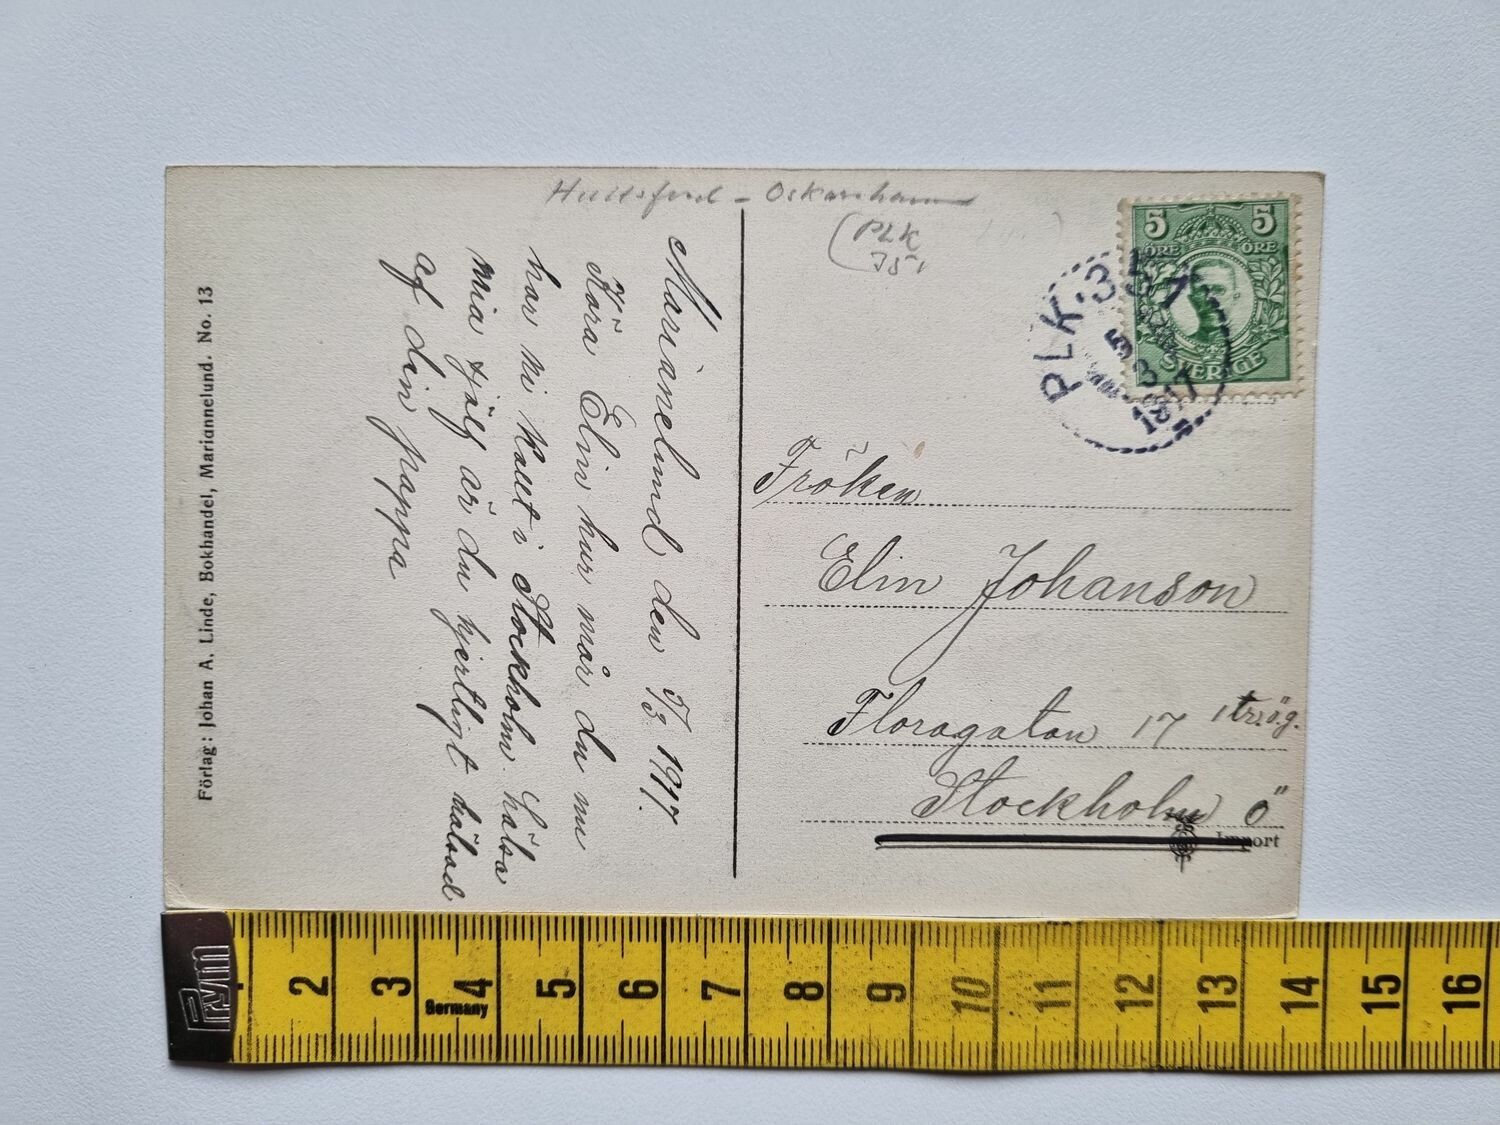 Hultsfred - Oskarshamn
(PLK
351
5 5
ÖRE ÖRE
SVERIGE
PLK. 351
5
3
1917
Marianelund den 5/3 1917.
Kära Elin hur mår du nu
har ni kallt i Stockholm. hälsa
Mia sjelf är du hjertligt hälsad
af din pappa
Fröken
Elin Johanson
Floragatan 17 1 tr. ö. g.
Stockholm Ö
Import
Förlag: Johan A. Linde, Bokhandel, Mariannelund. No. 13
Prym
1 2 3 4 5 6 7 8 9 10 11 12 13 14 15 16
Germany